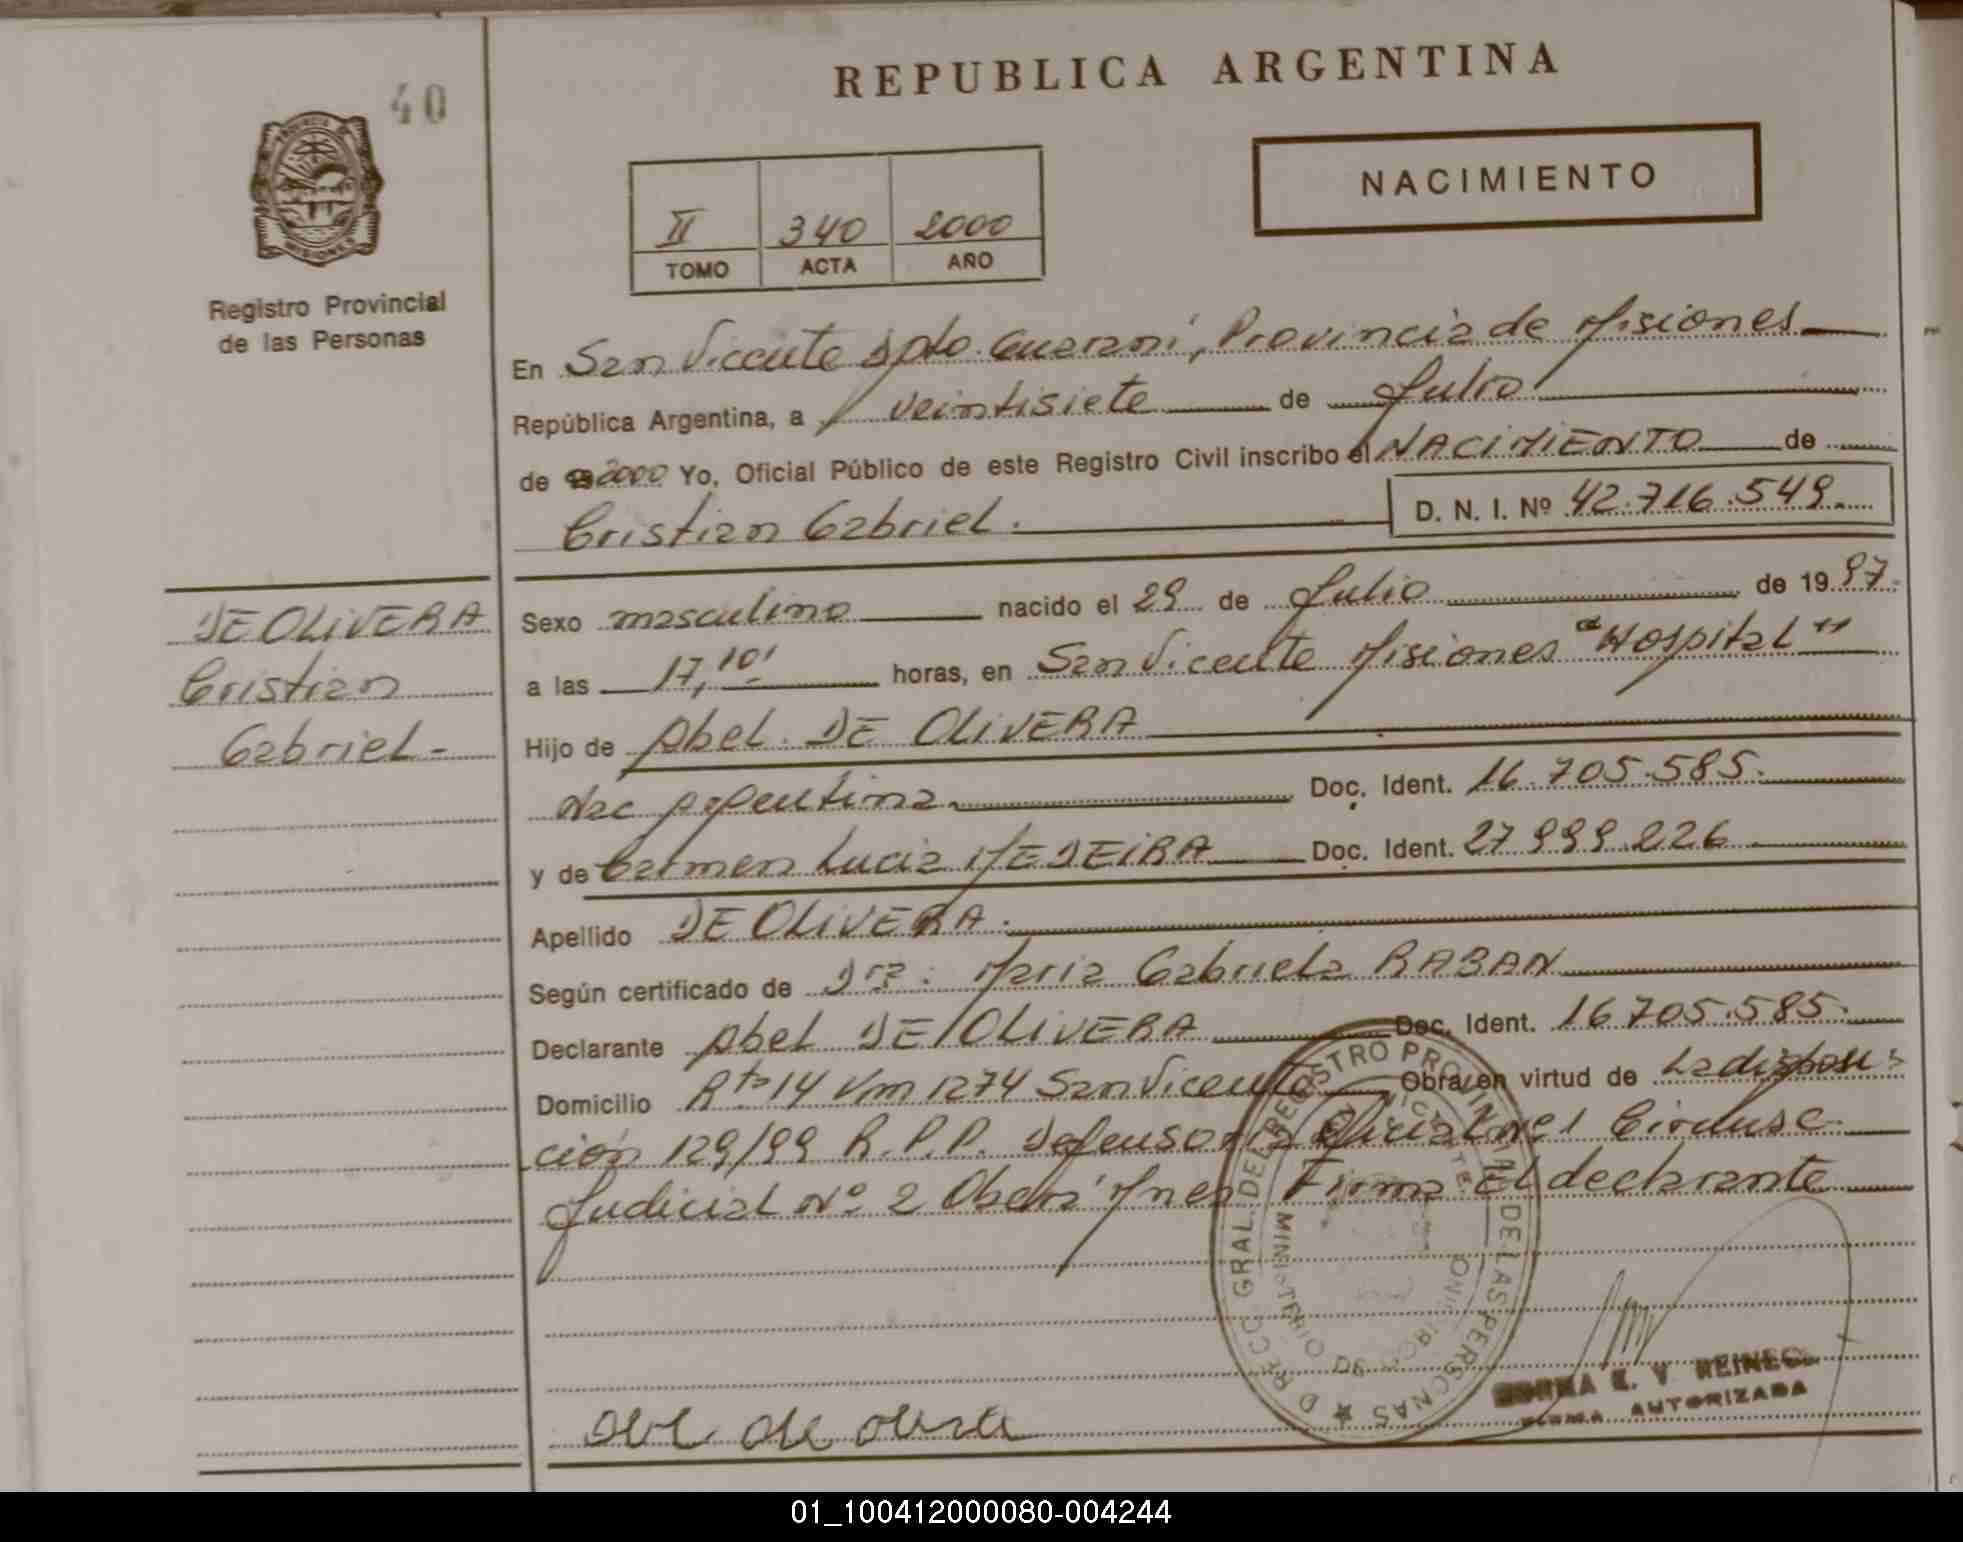 REPUBLICA ARGENTINA
40
PROVINCIA DE
MISIONES
Registro Provincial
de las Personas
NACIMIENTO
II 340 2000
TOMO ACTA AÑO
En San Vicente Dpto. Guaraní, Provincia de Misiones
República Argentina, a veintisiete de Julio
de 2000 Yo, Oficial Público de este Registro Civil inscribo el NACIMIENTO de
Cristian Gabriel. D. N. I. Nº 42.716.549.
DE OLIVERA
Cristian
Gabriel-
Sexo masculino nacido el 29 de Julio de 1997.
a las 17,10' horas, en San Vicente Misiones "Hospital"
Hijo de Abel DE OLIVERA
Nac Argentina Doc. Ident. 16.705.585.
y de Carmen Lucia MEDEIRA Doc. Ident. 27.999.226
Apellido DE OLIVERA.
Según certificado de Dra. Maria Gabriela RABAN
Declarante Abel DE OLIVERA Doc. Ident. 16705.585.
Domicilio Rta 14 Km 1274 San Vicente Obra en virtud de La disposi-
ción 129/99 R.P.P. Defensoria Oficial Mnes Circunsc.
Judicial Nº 2 Oberá Mnes Firma El declarante
DIRECC. GRAL. DEL REGISTRO PROVINCIAL DE LAS PERSONAS
MINISTERIO
NORMA E. V. REINEC
FIRMA AUTORIZADA
Abel de olivera
01_100412000080-004244